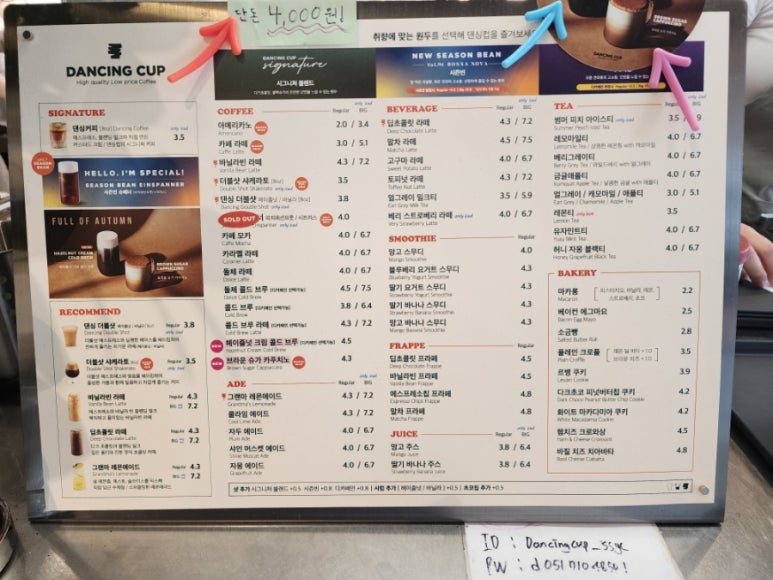 단돈 4,000원!
취향에 맞는 원두를 선택해 댄싱컵을 즐겨보세
DANCING CUP
High quality Low price Coffee
DANCING CUP
signature
시그니처 블렌드
NEW SEASON BEAN
Vol.94 BOSSA NOVA
시즌빈
BROWN SUGAR
CAPPUCCINO
DANCING CUP
SIGNATURE
댄싱커피 [8oz] Dancing Coffee
ICED only
3.5
HELLO. I'M SPECIAL!
SEASON BEAN EINSPANNER
FULL OF AUTUMN
HAZELNUT CREAM
COLD BREW
BROWN SUGAR
CAPPUCCINO
RECOMMEND
댄싱 더블샷 Regular 3.8
Dancing Double Shot
더블샷 샤케라토 [8oz] Regular 3.5
Double Shot Shakerato
바닐라빈 라떼 Regular 4.3
Vanilla Bean Latte BIG 7.2
딥초콜릿 라떼 Regular 4.3
Deep Chocolate Latte BIG 7.2
그랜마 레몬에이드 Regular 4.3
Grandma's Lemonade BIG 7.2
COFFEE Regular BIG
아메리카노 2.0 / 3.4
Americano
카페 라떼 3.0 / 5.1
Caffe Latte
바닐라빈 라떼 4.3 / 7.2
Vanilla Bean Latte
더블샷 샤케라토 [8oz] 3.5
Double Shot Shakerato
댄싱 더블샷 3.8
Dancing Double Shot
SOLD OUT 4.0
카페 모카 4.0 / 6.7
Caffe Mocha
카라멜 라떼 4.0 / 6.7
Caramel Latte
돌체 라떼 4.0 / 6.7
Dolce Latte
돌체 콜드 브루 4.5 / 7.5
Dolce Cold Brew
콜드 브루 3.8 / 6.4
Cold Brew
콜드 브루 라떼 4.3 / 7.2
Cold Brew Latte
헤이즐넛 크림 콜드 브루 4.5
Hazelnut Cream Cold Brew
브라운 슈가 카푸치노 4.3
Brown Sugar Cappuccino
ADE Regular BIG
그랜마 레몬에이드 4.3 / 7.2
Grandma's Lemonade
쿨라임 에이드 4.3 / 7.2
Cool Lime Ade
자두 에이드 4.0 / 6.7
Plum Ade
샤인 머스켓 에이드 4.0 / 6.7
Shine Muscat Ade
자몽 에이드 4.0 / 6.7
Grapefruit Ade
BEVERAGE Regular BIG
딥초콜릿 라떼 4.3 / 7.2
Deep Chocolate Latte
말차 라떼 4.5 / 7.5
Matcha Latte
고구마 라떼 4.0 / 6.7
Sweet Potato Latte
토피넛 라떼 4.3 / 7.2
Toffee Nut Latte
얼그레이 밀크티 3.5 / 5.9
Earl Grey Milk Tea
베리 스트로베리 라떼 4.0 / 6.7
Very Strawberry Latte
SMOOTHIE Regular
망고 스무디 4.0
Mango Smoothie
블루베리 요거트 스무디 4.3
Blueberry Yogurt Smoothie
딸기 요거트 스무디 4.3
Strawberry Yogurt Smoothie
딸기 바나나 스무디 4.3
Strawberry Banana Smoothie
망고 바나나 스무디 4.3
Mango Banana Smoothie
FRAPPE Regular
딥초콜릿 프라페 4.5
Deep Chocolate Frappe
바닐라빈 프라페 4.5
Vanilla Bean Frappe
에스프레소칩 프라페 4.5
Espresso Chips Frappe
말차 프라페 4.5
Matcha Frappe
JUICE Regular BIG
망고 주스 3.8 / 6.4
Mango Juice
딸기 바나나 주스 3.8 / 6.4
Strawberry Banana Juice
TEA
썸머 피치 아이스티 3.5
Summer Peach Iced Tea
레모마일티 4.0 / 6.7
베리그레이티 4.0 / 6.7
금귤애플티 4.0 / 6.7
얼그레이 / 캐모마일 / 애플티 3.0 / 5.1
Earl Grey / Chamomile / Apple Tea
레몬티 3.5
Lemon Tea
유자민트티 4.0 / 6.7
Yuja Mint Tea
허니 자몽 블랙티 4.0 / 6.7
Honey Grapefruit Black Tea
BAKERY
마카롱 2.2
Macaron
베이컨 에그마요 2.5
Bacon Egg Mayo
소금빵 2.8
Salted Butter Roll
플레인 크로플 3.5
Plain Croffle
르뱅 쿠키 3.9
Levain Cookie
다크초코 피넛버터칩 쿠키 4.2
Dark Choco Peanut Butter Chip Cookie
화이트 마카다미아 쿠키 4.2
White Macadamia Cookie
햄치즈 크로와상 4.5
Ham & Cheese Croissant
바질 치즈 치아바타 4.8
Basil Cheese Ciabatta
샷 추가 시그니처 블렌드 +0.5 시즌빈 +0.8 디카페인 +0.8 | 시럽 추가 [ 헤이즐넛 / 바닐라 ] +0.5 | 초코칩 추가 +0.5
ID : Dancingcup_ssyc